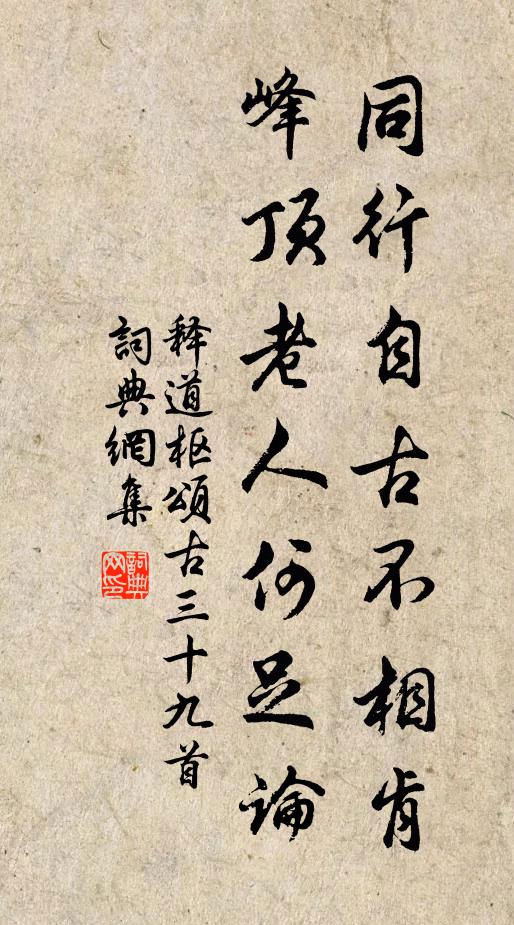 同行自古不相肯
峰顶老人何足論
释道枢頌古三十九首
詞典網集
詞典网印